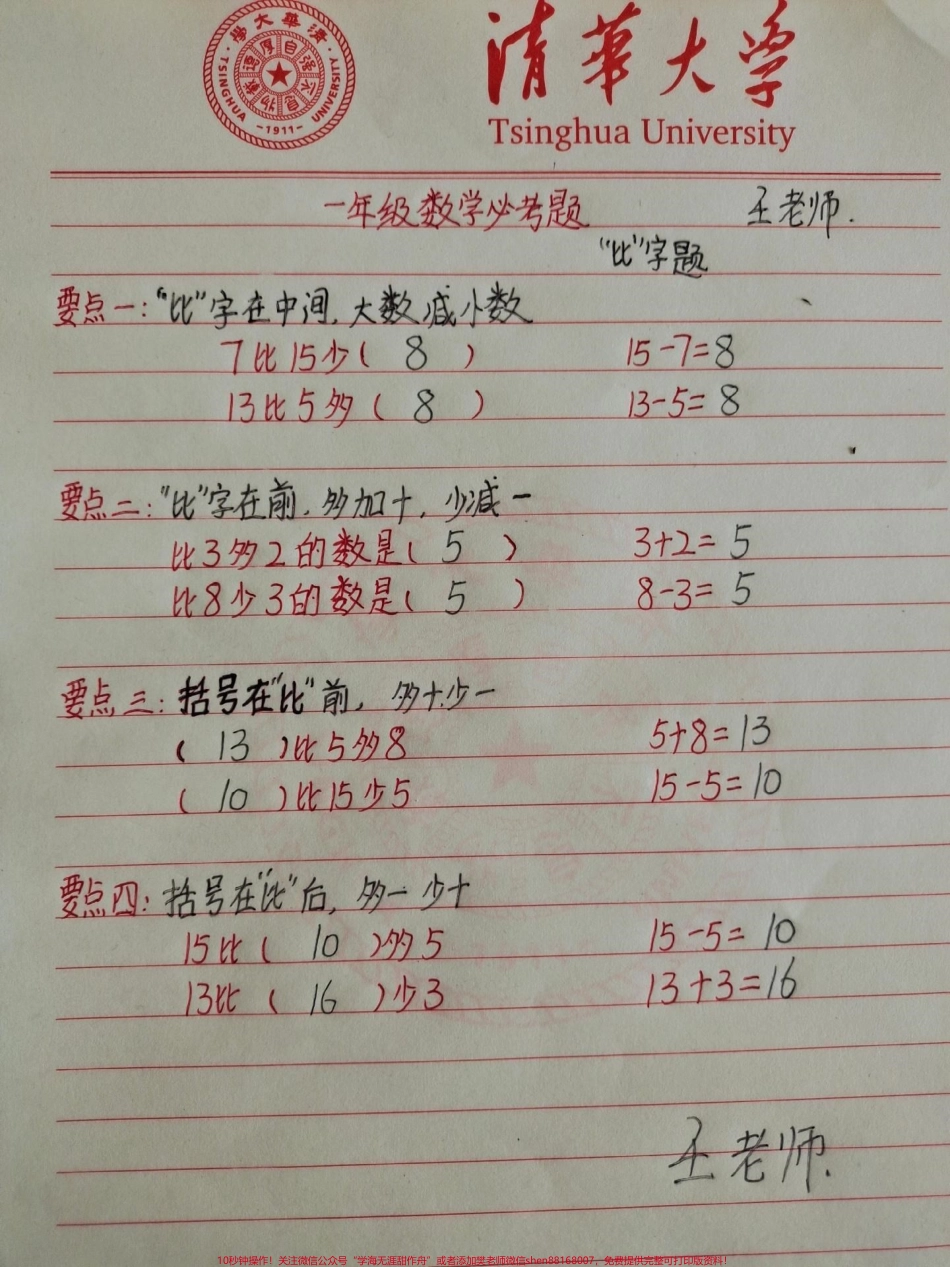 清華大学
Tsinghua University
清華大學
TSINGHUA UNIVERSITY
自强不息
厚德載物
-1911-
一年级数学必考题 王老师.
"比"字题
要点一:"比"字在中间,大数减小数
7比15少( 8 ) 15-7=8
13比5多( 8 ) 13-5=8
要点二:"比"字在前,多加十,少减一
比3多2的数是( 5 ) 3+2=5
比8少3的数是( 5 ) 8-3=5
要点三:括号在"比"前,多十少一
( 13 )比5多8 5+8=13
( 10 )比15少5 15-5=10
要点四:括号在"比"后,多一少十
15比( 10 )多5 15-5=10
13比( 16 )少3 13+3=16
王老师.
10秒钟操作!关注微信公众号“学海无涯甜作舟”或者添加樊老师微信shen88168007,免费提供完整可打印版资料!